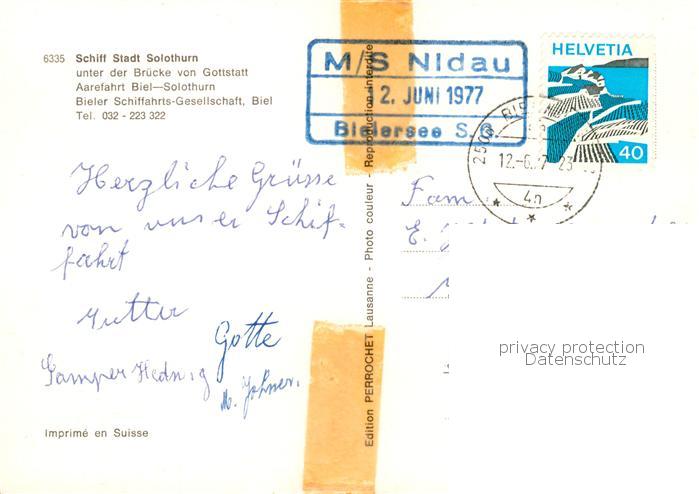 6335 Schiff Stadt Solothurn
unter der Brücke von Gottstatt
Aarefahrt Biel—Solothurn
Bieler Schiffahrts-Gesellschaft, Biel
Tel. 032 - 223 322
M/S Nidau
12. JUNI 1977
Bielersee S.G.
HELVETIA
40
2500
12.-6.77 23
4n
Herzliche Grüsse
von unser Schif-
fahrt
Mutter
Gotte
Gamper Hedwig
M. Johner.
Fam
E.
Edition PERROCHET Lausanne - Photo couleur - Reproduction interdite
Imprimé en Suisse
privacy protection
Datenschutz